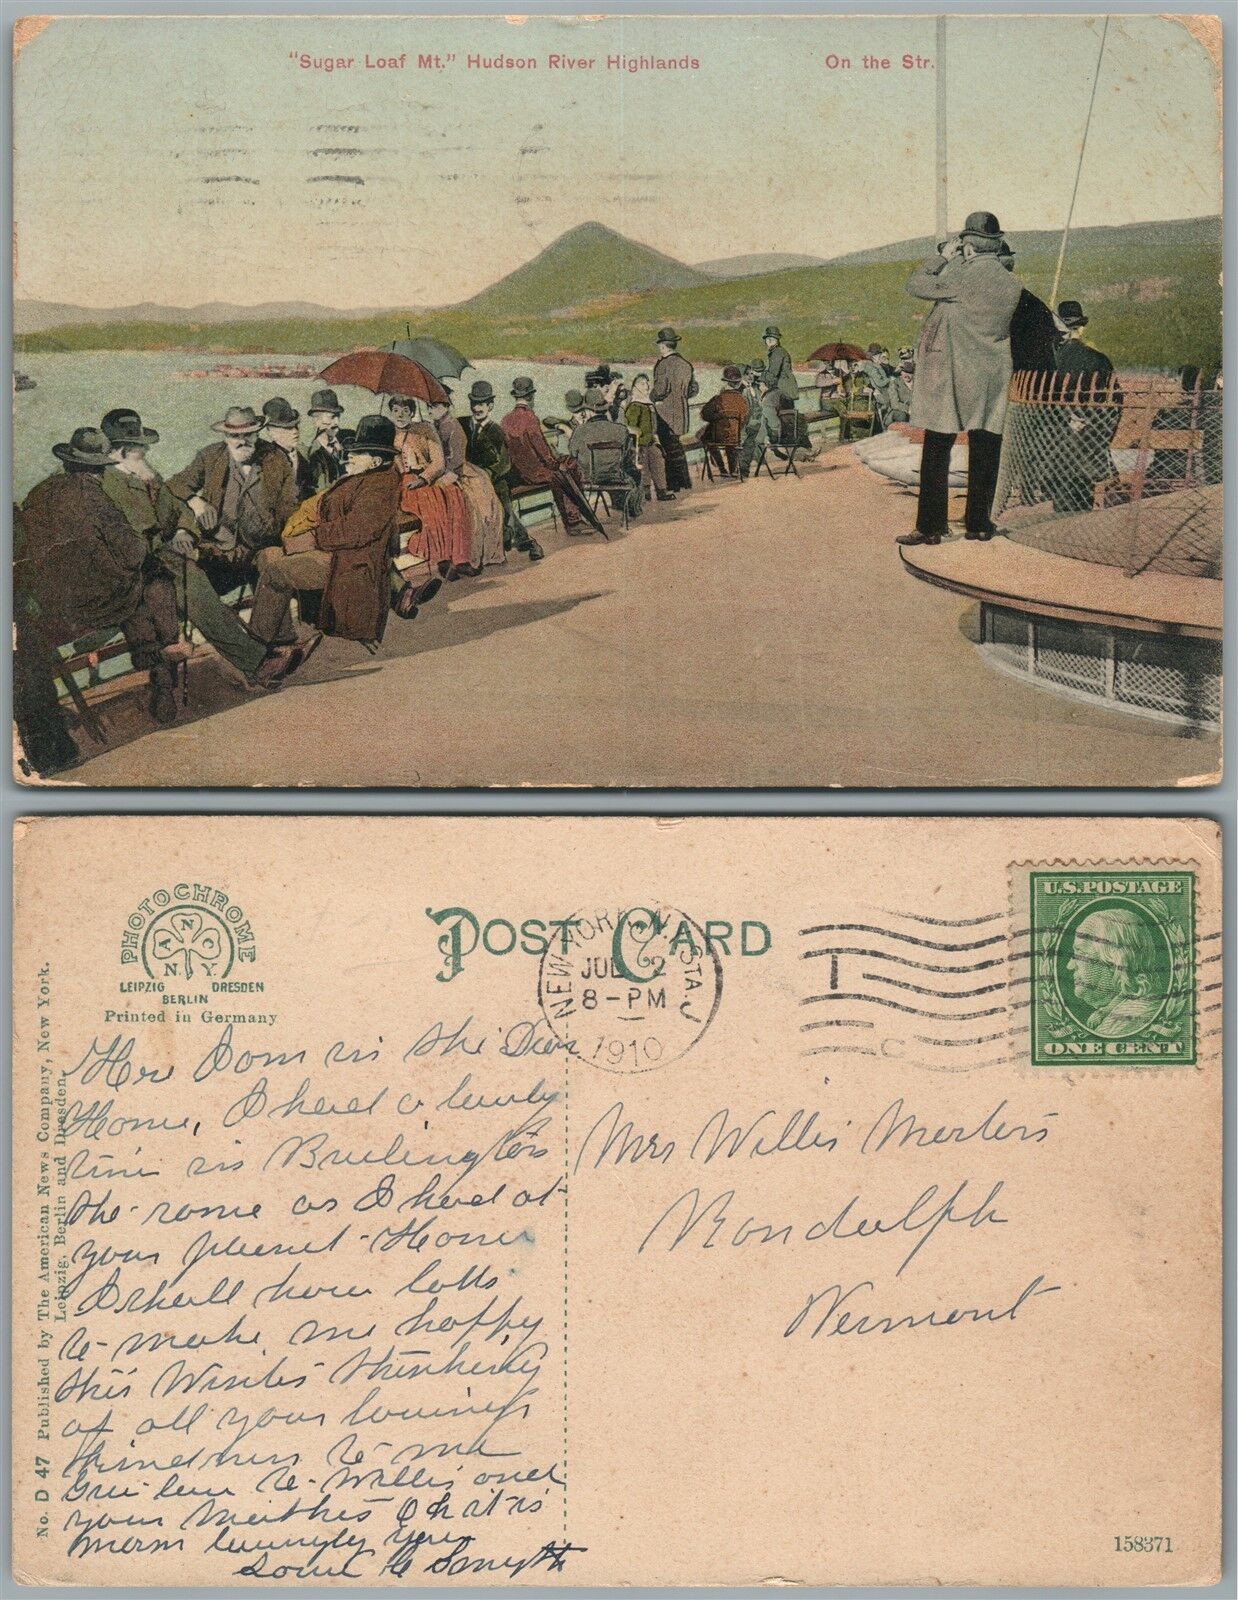 "Sugar Loaf Mt." Hudson River Highlands On the Str.
PHOTOCHROME
A N C
N.Y.
LEIPZIG DRESDEN
BERLIN
Printed in Germany
POST CARD
NEW YORK, N.Y. STA. J
JUL 2
8-PM
1910
U.S. POSTAGE
ONE CENT
No. D 47 Published by The American News Company, New York.
Leipzig, Berlin and Dresden.
Here I am in the Dear
Home, I had a lovely
time in Burlington
the same as I had at
your pleasant Home
I shall have lots
to make me happy
this Winter thinking
of all your loving
kindness to me
Give love to Willis and
your Mother Oh it is
warm lovingly your
Smyth
Mrs Willis
Randolph
Vermont
158371